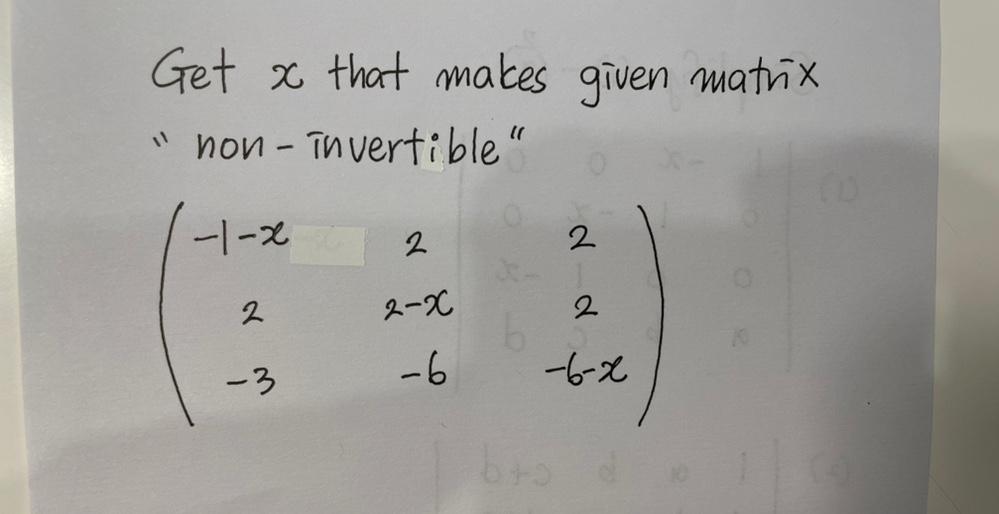 Get x that makes given matrix
"non-invertible"
-1-x 2 2
2 2-x 2
-3 -6 -6-x